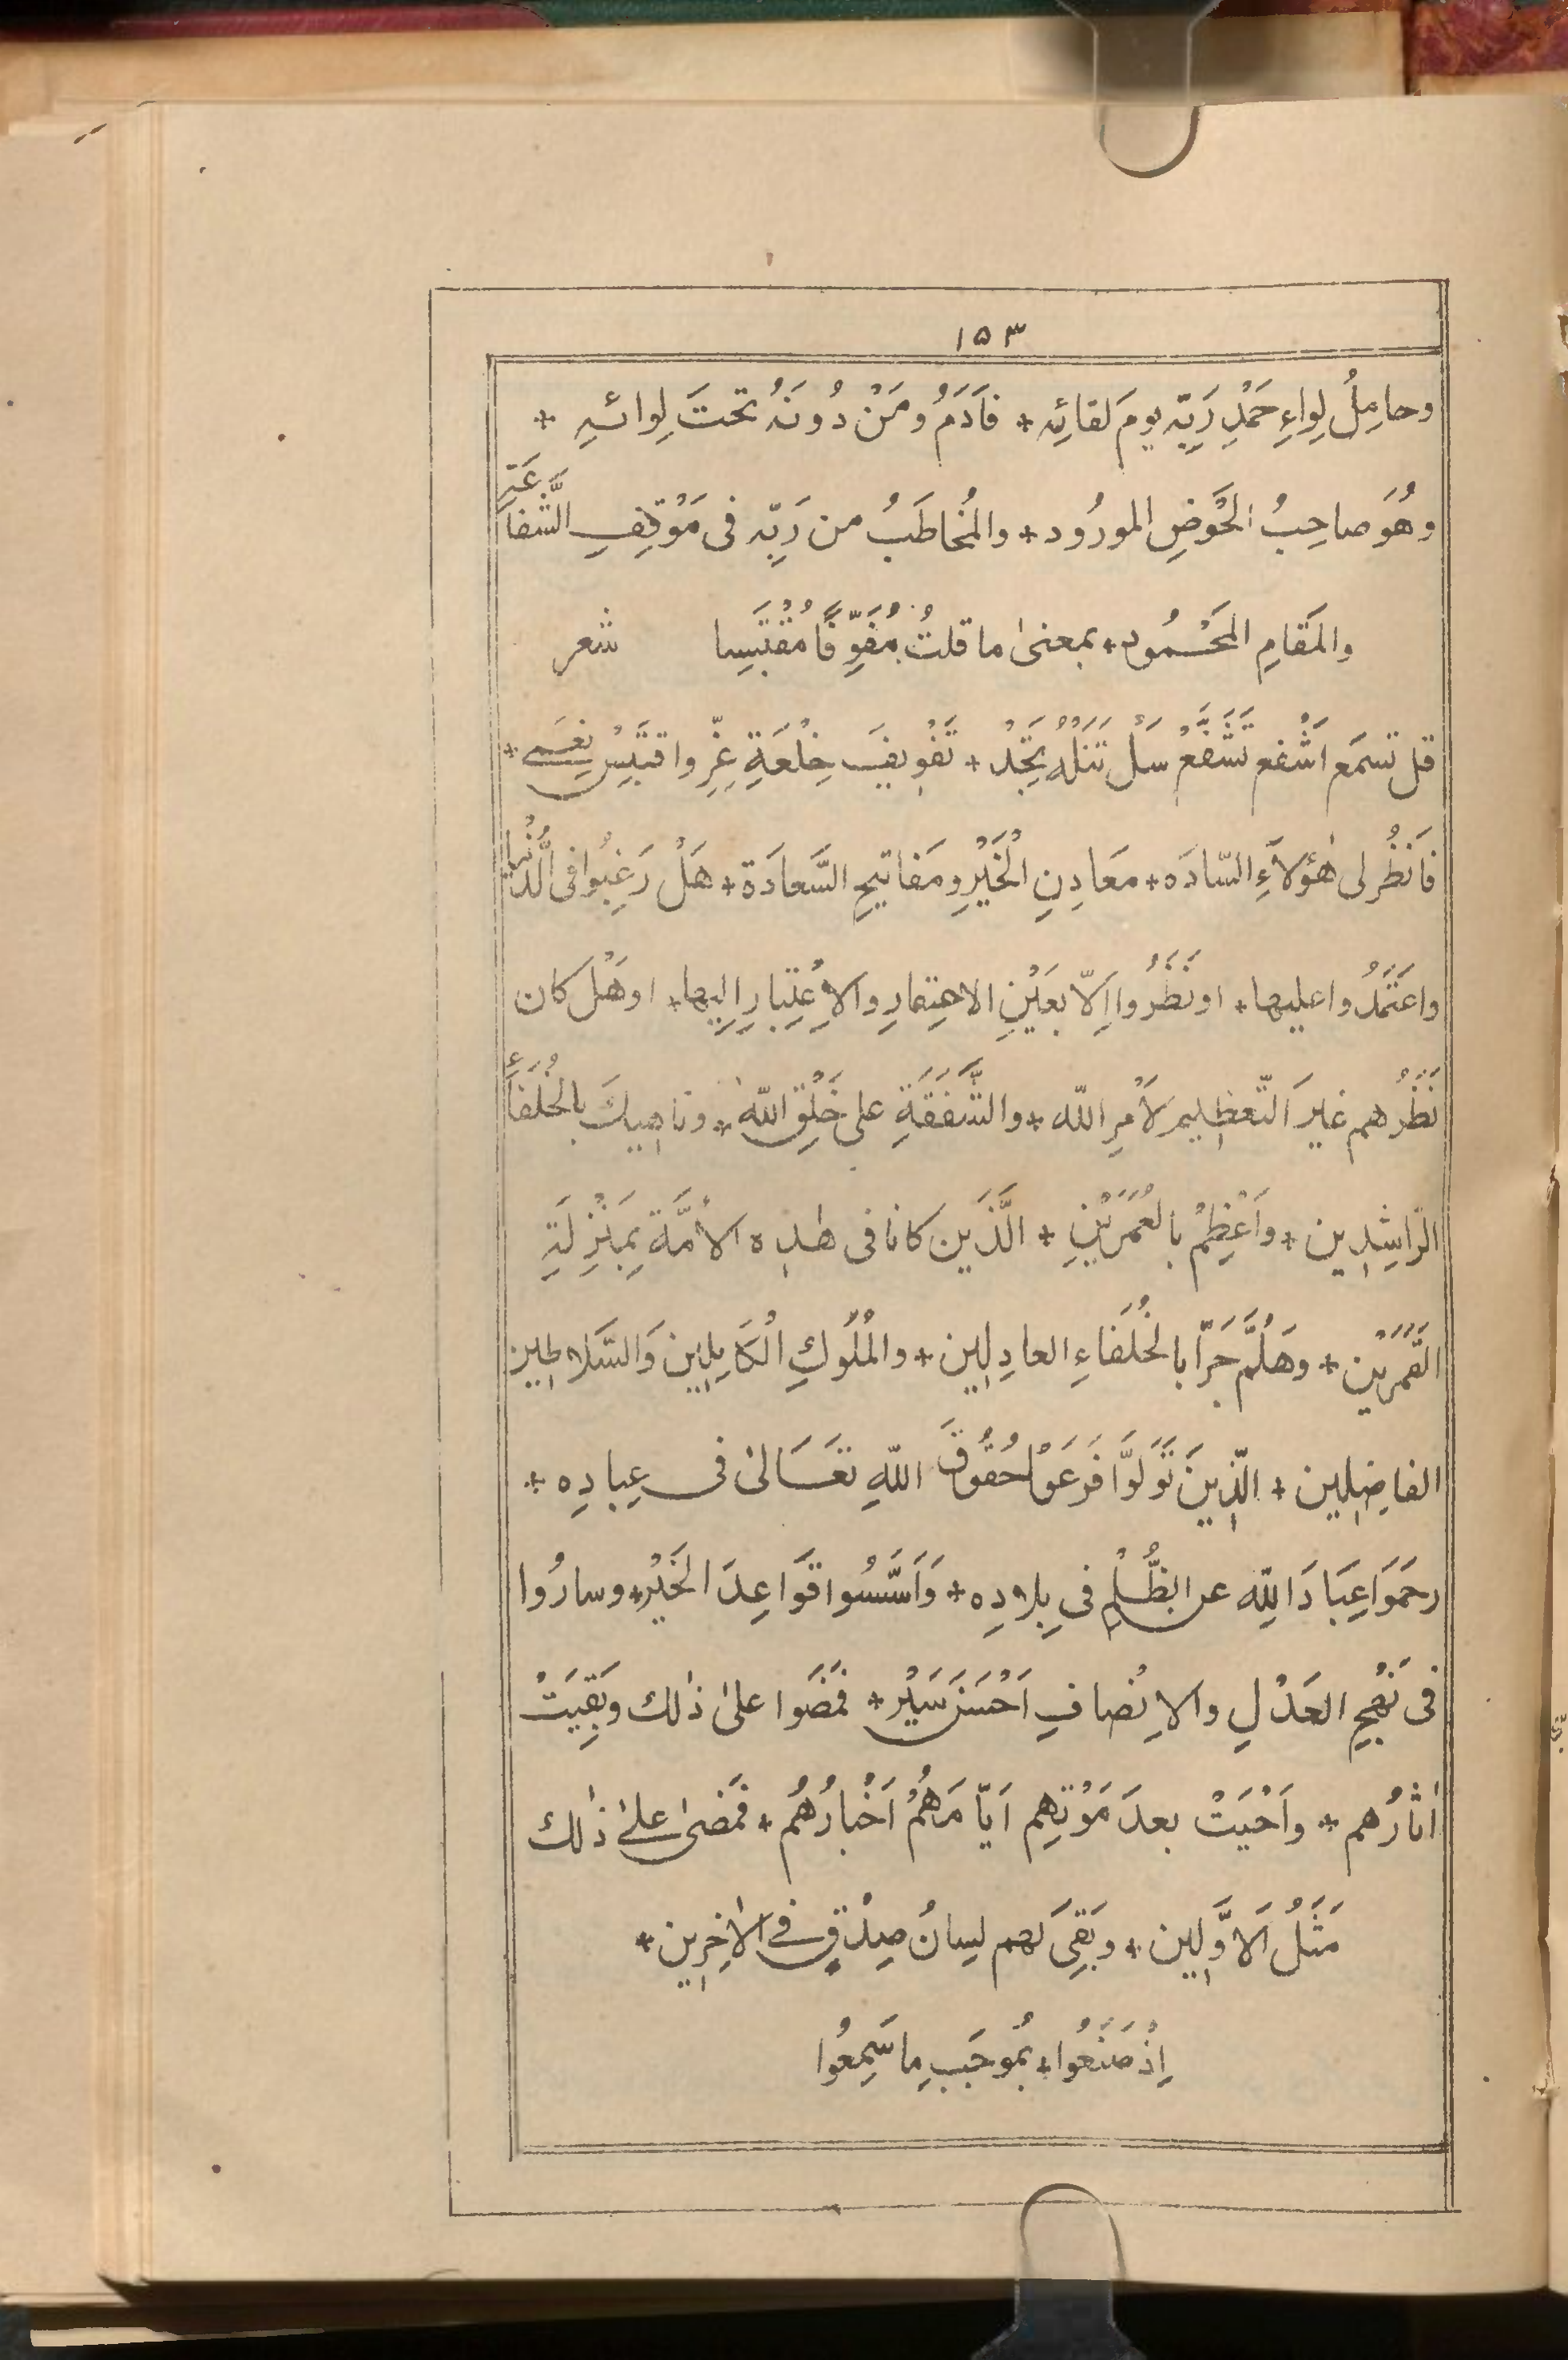 ١٥٣
وحامِلُ لِواءِ حَمْدِ رَبِّه يومَ لقائِه + فآدَمُ ومَنْ دُونَهُ تحتَ لِوائـهِ +
وهُوَ صاحِبُ الحَوْضِ المورُود + والمُخاطَبُ من رَبِّه فى مَوْقِفِ الشَّفاعَةِ
والمَقامِ المَحْـمُود + بمعنىٰ ما قلتُ مُفَوِّفًا مُقْتَبِسا شعر
قل تسمَع اشْفع تشَفَّعْ سَلْ تَنَلْهُ تَجِدْ + تَفْوِيفَ خِلْعَةِ عِزٍّ واقتَبِسْ نِعَمـِے +
فَانظُر لى هٰؤلاَءِ السّادَه + مَعَادِنِ الخَيْرِ ومَفاتيحِ السَّعادَة + هَلْ رَغِبُوا فى الدُّنْيا
واعتَمَدُوا عليها + او نَظَرُوا اِلّا بعَيْنِ الاهتِمامِ والاِعْتِبارِ اِليها + او هَلْ كان
نَظَرُهم غيرَ التّعظِيمِ لأَمرِ الله + والشَّفَقَةِ على خَلْقِ اللّٰه + وناهِيكَ بالخُلَفاءِ
الرّاشِدِين + واَعْظِمْ بالعُمَرَيْنِ + الَّذَين كانا فى هٰذِه الأُمَّة بِمَنْزِلَةِ
القَمَرَيْن + وهَلُمَّ جَرّا بالخُلَفاءِ العادِلِين + والمُلُوكِ الْكَامِلِين وَالسَّلاطِين
الفاضِلِين + الّذِينَ تَوَلَّوا فَرَعَوْا حُقُوقَ اللهِ تعَالىٰ فى عِبادِه +
رحمَوَا عِبَادَ اللهِ عن الظُّلْمِ فى بِلادِه + وَاَسَّسُوا قَوَاعِدَ الخَيْرِ + وسارُوا
فى نَهْجِ العَدْلِ والاِنْصافِ اَحْسَنَ سَيْر + فمَضَوا علىٰ ذٰلك وبَقِيَتْ
اٰثارُهم + واَحْيَتْ بعدَ مَوْتِهم اَيّامَهُمْ اَخْبارُهُم + فمَضىٰ علىٰ ذٰلك
مَثَلُ الاَوَّلِين + وبَقِىَ لهم لِسانُ صِدْقٍ فے الاٰخِرِين +
اِذْ صَنَعُوا + بمُوجَبِ ما سَمِعُوا